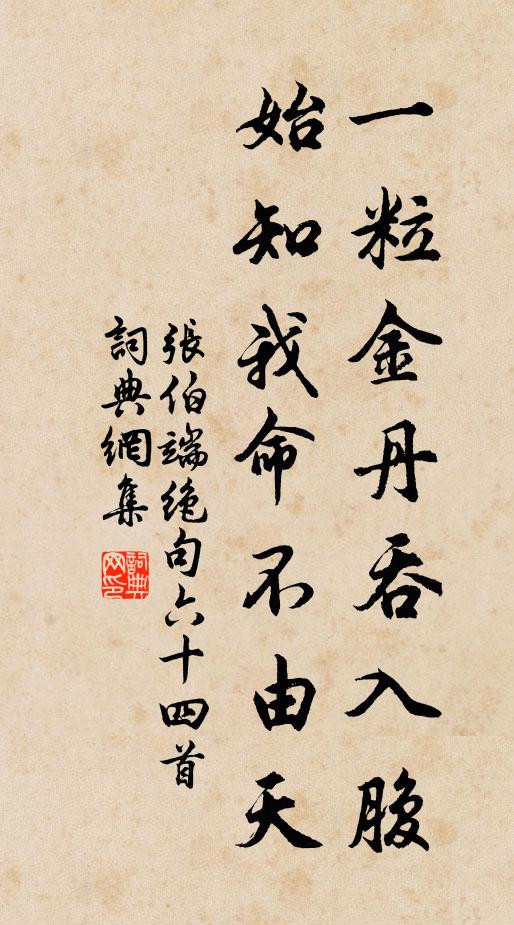 一粒金丹吞入腹
始知我命不由天
張伯端絶句六十四首
詞典網集
詞典网印